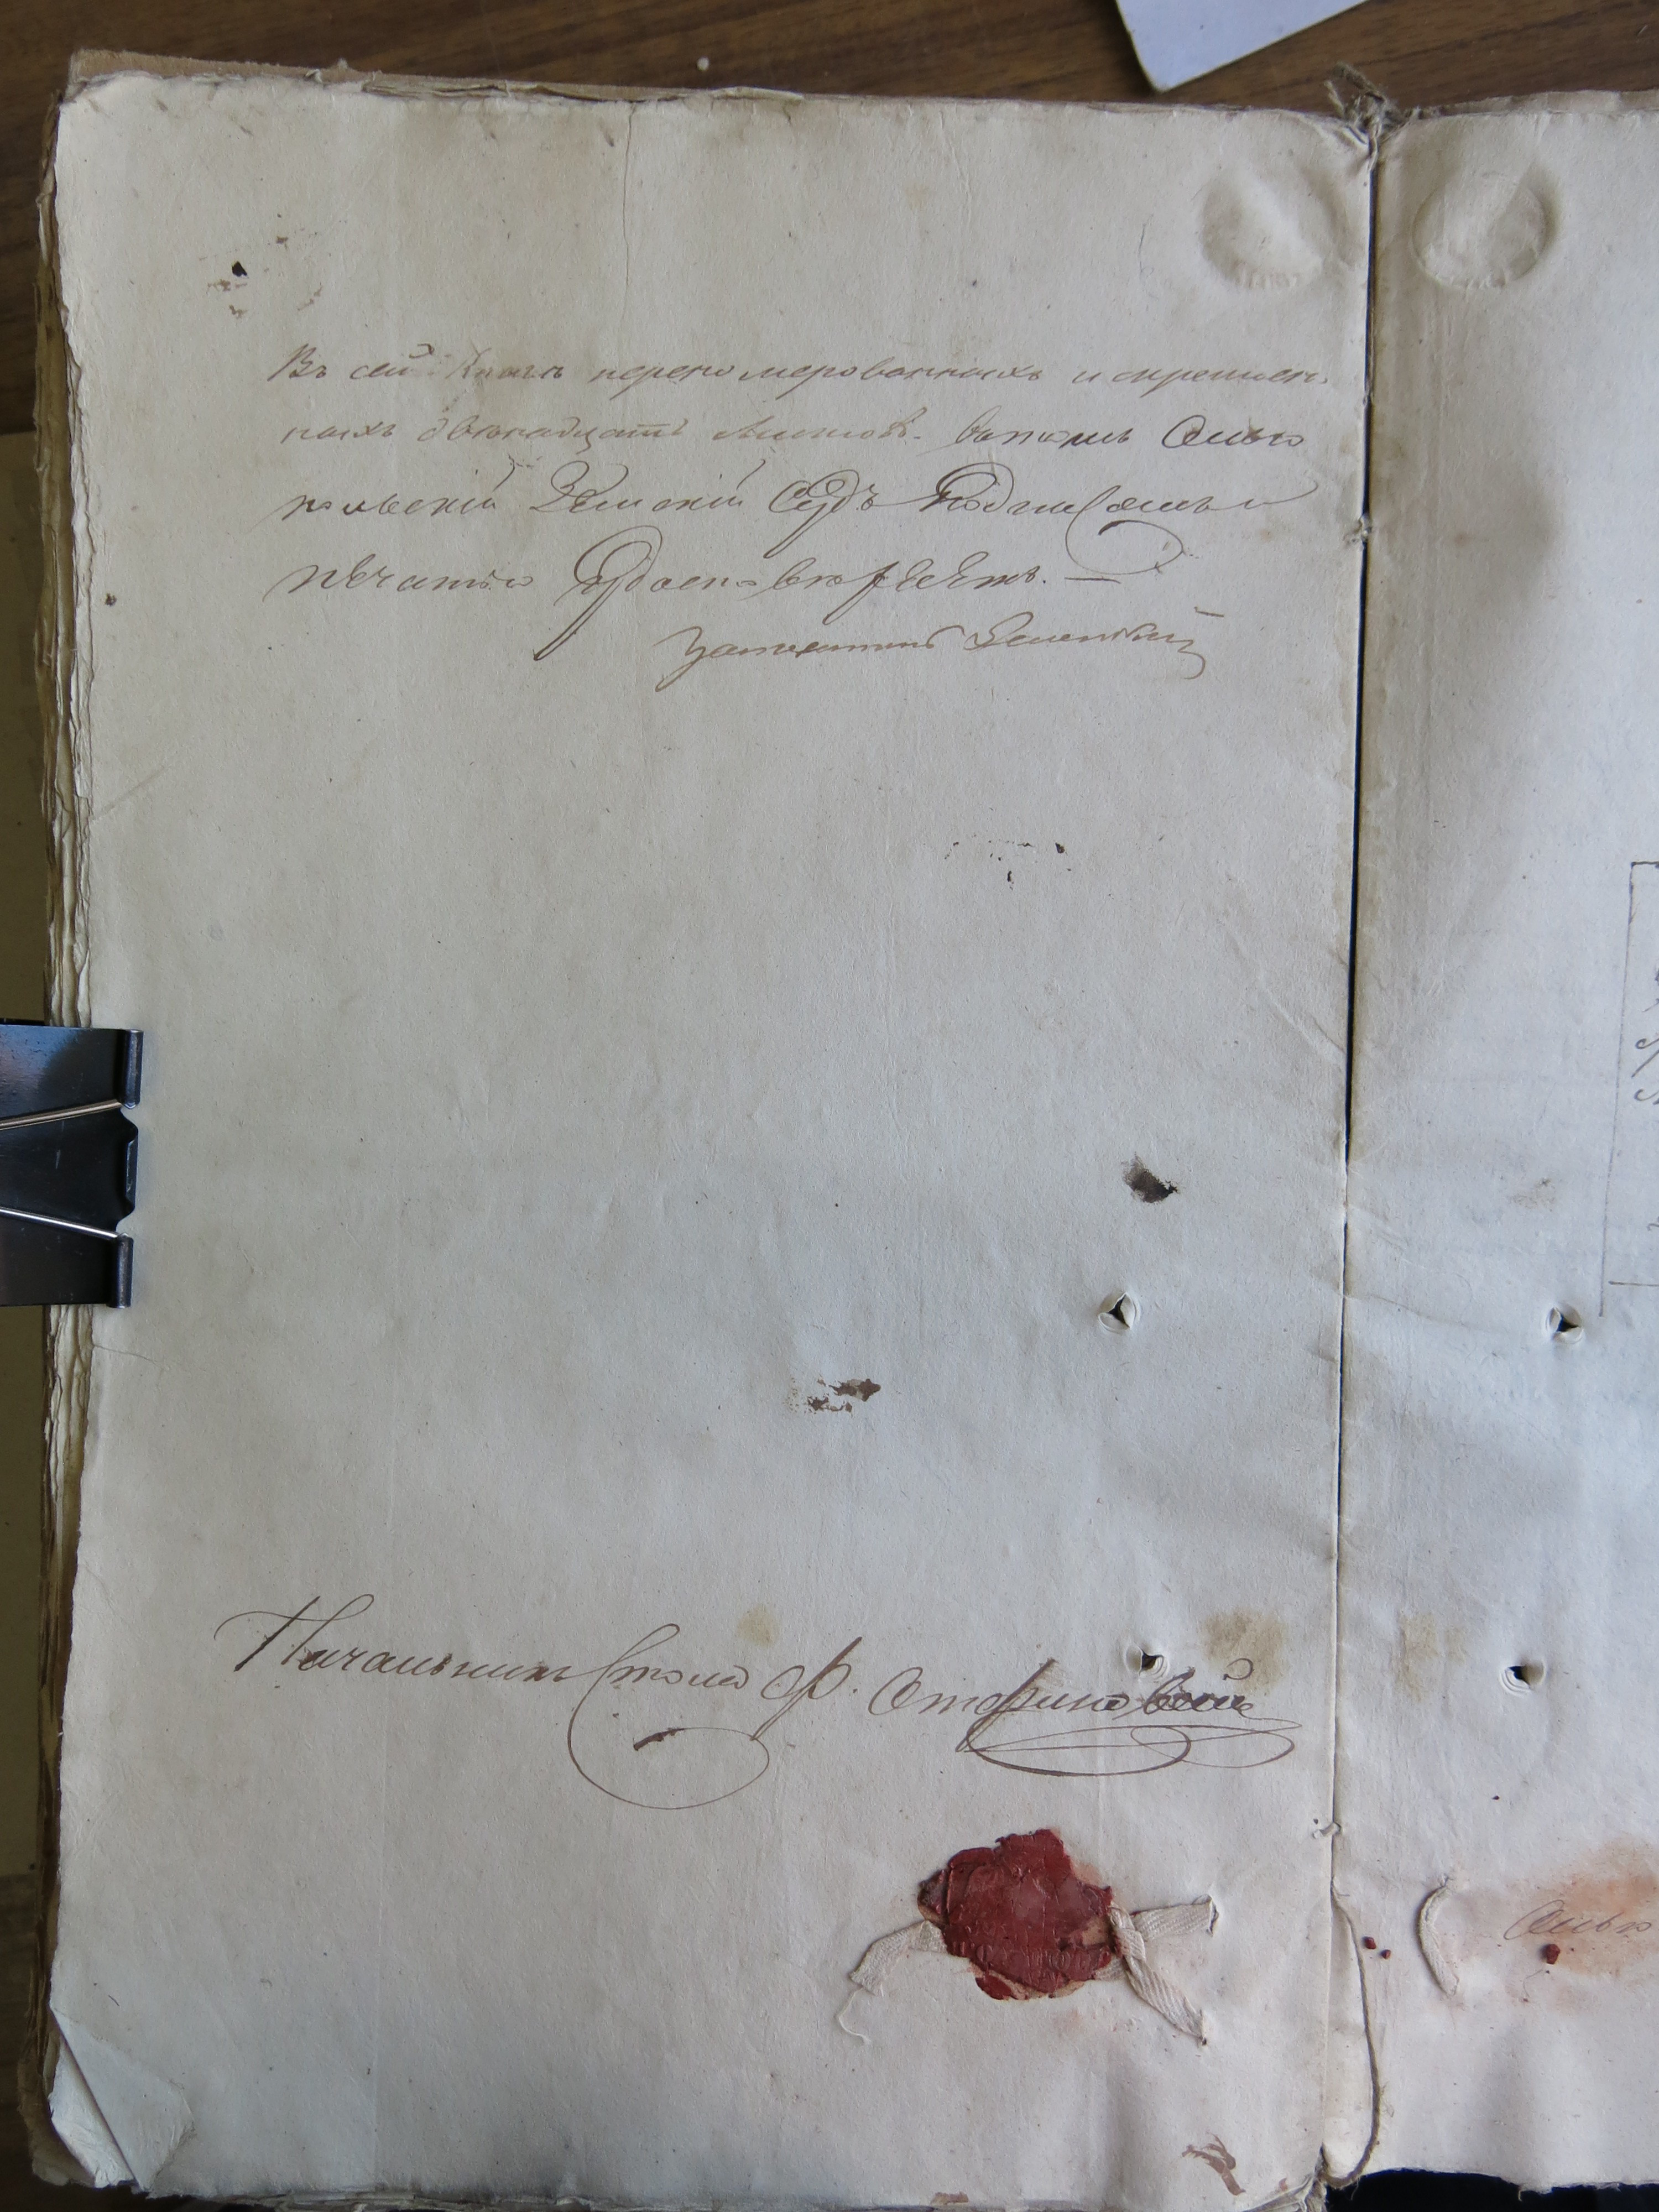 Въ сей Книгѣ перенумерованныхъ и скрѣплен-
ныхъ двѣнадцать листовъ. въ томъ Ольго
польскій Земскій Судъ подписомъ и
печатью удостовѣряетъ. —
Засѣдатель
Начальникъ Стола Ф.
Ольго